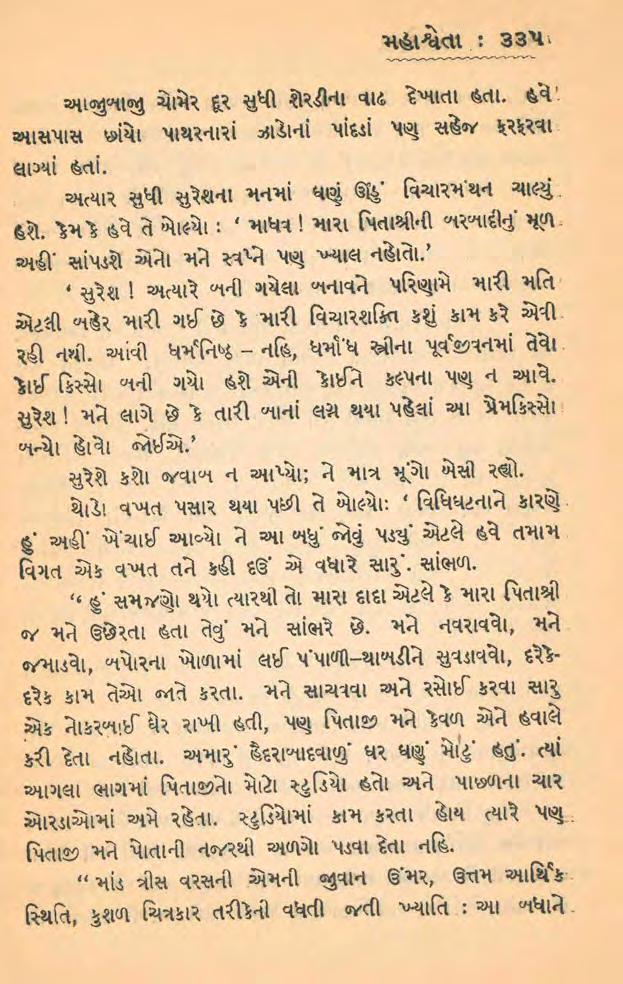 મહાશ્વેતા : ૩૩૫
આજુબાજુ ચોમેર દૂર સુધી શેરડીના વાઢ દેખાતા હતા. હવે
આસપાસ છાંયો પાથરનારાં ઝાડોનાં પાંદડાં પણ સહેજ ફરફરવા
લાગ્યાં હતાં.
અત્યાર સુધી સુરેશના મનમાં ઘણું ઊંડું વિચારમંથન ચાલ્યું
હશે. કેમ કે હવે તે બોલ્યો : ‘ માધવ ! મારા પિતાશ્રીની બરબાદીનું મૂળ
અહીં સાંપડશે એનો મને સ્વપ્ને પણ ખ્યાલ નહોતો.’
‘ સુરેશ ! અત્યારે બની ગયેલા બનાવને પરિણામે મારી મતિ
એટલી બહેર મારી ગઈ છે કે મારી વિચારશક્તિ કશું કામ કરે એવી
રહી નથી. આવી ધર્મનિષ્ઠ – નહિ, ધર્માંધ સ્ત્રીના પૂર્વજીવનમાં તેવો
કોઈ કિસ્સો બની ગયો હશે એની કોઈને કલ્પના પણ ન આવે.
સુરેશ ! મને લાગે છે કે તારી બાનાં લગ્ન થયા પહેલાં આ પ્રેમકિસ્સો
બન્યો હોવો જોઈએ.’
સુરેશે કશો જવાબ ન આપ્યો; ને માત્ર મૂંગો બેસી રહ્યો.
થોડો વખત પસાર થયા પછી તે બોલ્યોઃ ‘ વિધિઘટનાને કારણે
હું અહીં ખેંચાઈ આવ્યો ને આ બધું જોવું પડ્યું એટલે હવે તમામ
વિગત એક વખત તને કહી દઉં એ વધારે સારું. સાંભળ.
“ હું સમજણો થયો ત્યારથી તો મારા દાદા એટલે કે મારા પિતાશ્રી
જ મને ઉછેરતા હતા તેવું મને સાંભરે છે. મને નવરાવવો, મને
જમાડવો, બપોરના ખોળામાં લઈ પંપાળી–થાબડીને સુવડાવવો, દરેકે-
દરેક કામ તેઓ જાતે કરતા. મને સાચવવા અને રસોઈ કરવા સારુ
એક નોકરબાઈ ઘેર રાખી હતી, પણ પિતાજી મને કેવળ એને હવાલે
કરી દેતા નહોતા. અમારું હૈદરાબાદવાળું ઘર ઘણું મોટું હતું. ત્યાં
આગલા ભાગમાં પિતાજીનો મોટો સ્ટુડિયો હતો અને પાછળના ચાર
ઓરડાઓમાં અમે રહેતા. સ્ટુડિયોમાં કામ કરતા હોય ત્યારે પણ
પિતાજી મને પોતાની નજરથી અળગો પડવા દેતા નહિ.
“ માંડ ત્રીસ વરસની એમની જુવાન ઉંમર, ઉત્તમ આર્થિક
સ્થિતિ, કુશળ ચિત્રકાર તરીકેની વધતી જતી ખ્યાતિ : આ બધાને